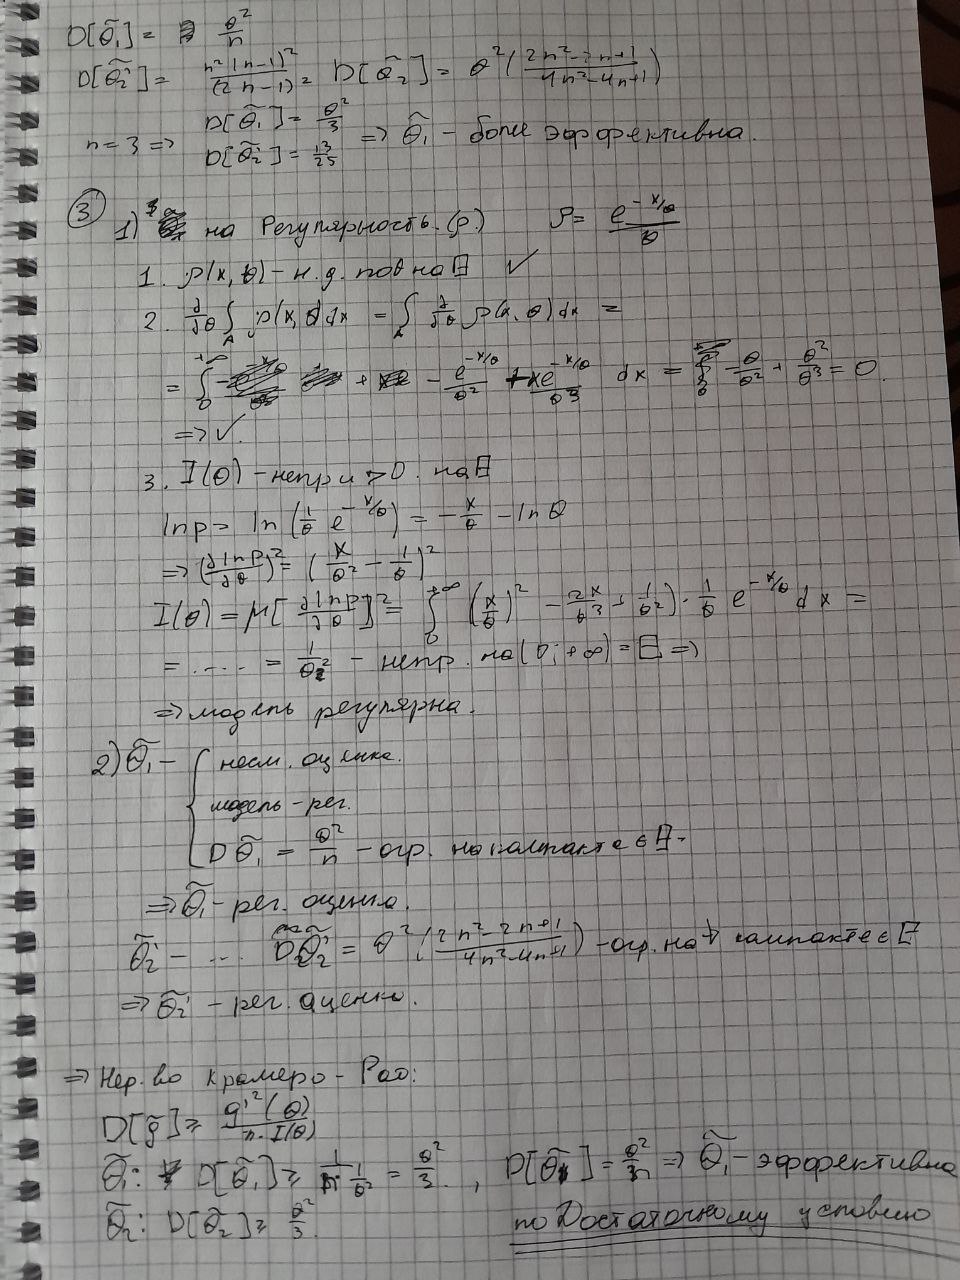 D[θ̃₁] = θ²/n
D[θ̃₂'] = n²(n-1)²/(2n-1)² = D[θ̃₂'] = θ²((2n²-2n+1)/(4n²-4n+1))
n=3 => D[θ̃₁] = θ²/3
D[θ̃₂'] = 13/25 => θ̃₁ - более эффективна.
③ 1) на Регулярность (p) p = e^(-x/θ)/θ
1. p(x,θ) - н.д. по θ на Θ ✓
2. ∂/∂θ ∫_A p(x,θ)dx = ∫_A ∂/∂θ p(x,θ)dx =
= ∫₀^(+∞) - e^(-x/θ)/θ² + xe^(-x/θ)/θ³ dx = - θ/θ² + θ²/θ³ = 0.
=> ✓.
3. I(θ) - непр и >0. на Θ
ln p = ln(1/θ e^(-x/θ)) = -x/θ - ln θ
=> (∂ln p/∂θ)² = (x/θ² - 1/θ)²
I(θ) = M[∂ln p/∂θ]² = ∫₀^(+∞) (x/θ)² - 2x/θ³ + 1/θ²) · 1/θ e^(-x/θ) dx =
= .... = 1/θ² - непр. на (0; +∞) = Θ =>
=> модель регулярна.
2) θ̃₁ - { несм. оценка.
модель - рег.
Dθ̃₁ = θ²/n - огр. на компакте ∈ Θ.
=> θ̃₁ - рег. оценка.
θ̃₂' - ... Dθ̃₂' = θ²((2n²-2n+1)/(4n²-4n+1)) - огр. на ∀ компакте ∈ Θ
=> θ̃₂' - рег. оценка.
=> Нер-во Крамера - Рао:
D[g̃] ≥ g'²(θ)/(n·I(θ))
θ̃₁: D[θ̃₁] ≥ 1/(n·1/θ²) = θ²/3. , D[θ̃₁] = θ²/n => θ̃₁ - эффективна
θ̃₂: D[θ̃₂] ≥ θ²/3. по Достаточному условию